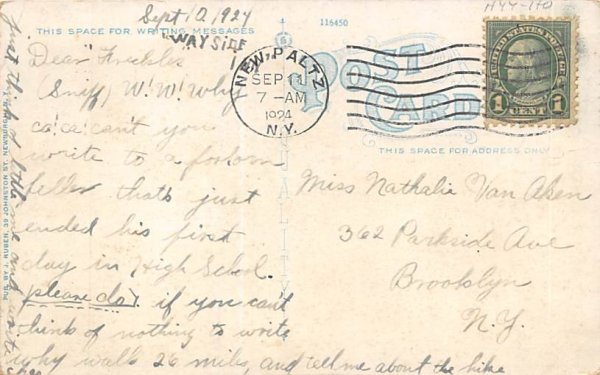 Sept 10 1924
116450
H44-110
THIS SPACE FOR WRITING MESSAGES
"WAYSIDE"
POST CARD
THIS SPACE FOR ADDRESS ONLY
NEW PALTZ
SEP 11
7-AM
1924
N.Y.
UNITED STATES POSTAGE
1 CENT 1
Dear "Freckles"
(Sniff) W! W! Why
ca'ca'can't you
write to a forlorn
feller thats just
ended his first
day in High School.
please do). if you can't
think of nothing to write
why walk 26 miles, and tell me about the hike
Miss Nathalie Van Aken
362 Parkside Ave
Brooklyn
N.Y.
PUB. BY J. RUBEN, 39 JOHNSTON ST. NEWBURGH, N.Y.
Just think of little me and